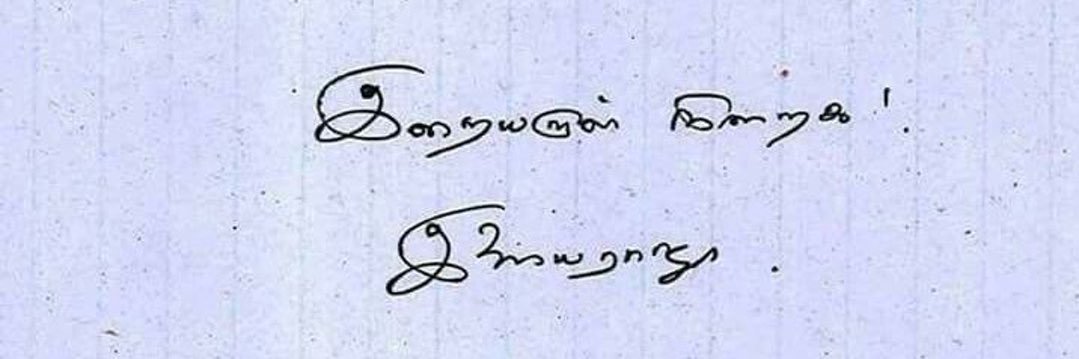 இறையருள் நிறைக!.
இளையராஜா.